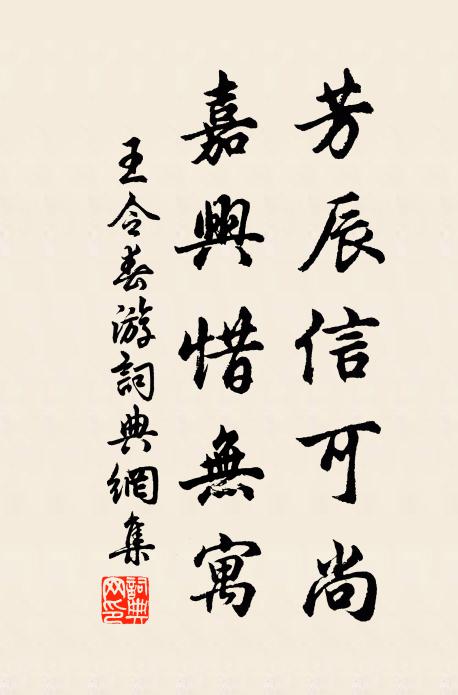 芳辰信可尚
嘉興惜無寓
王令春游詞典網集
詞典網印